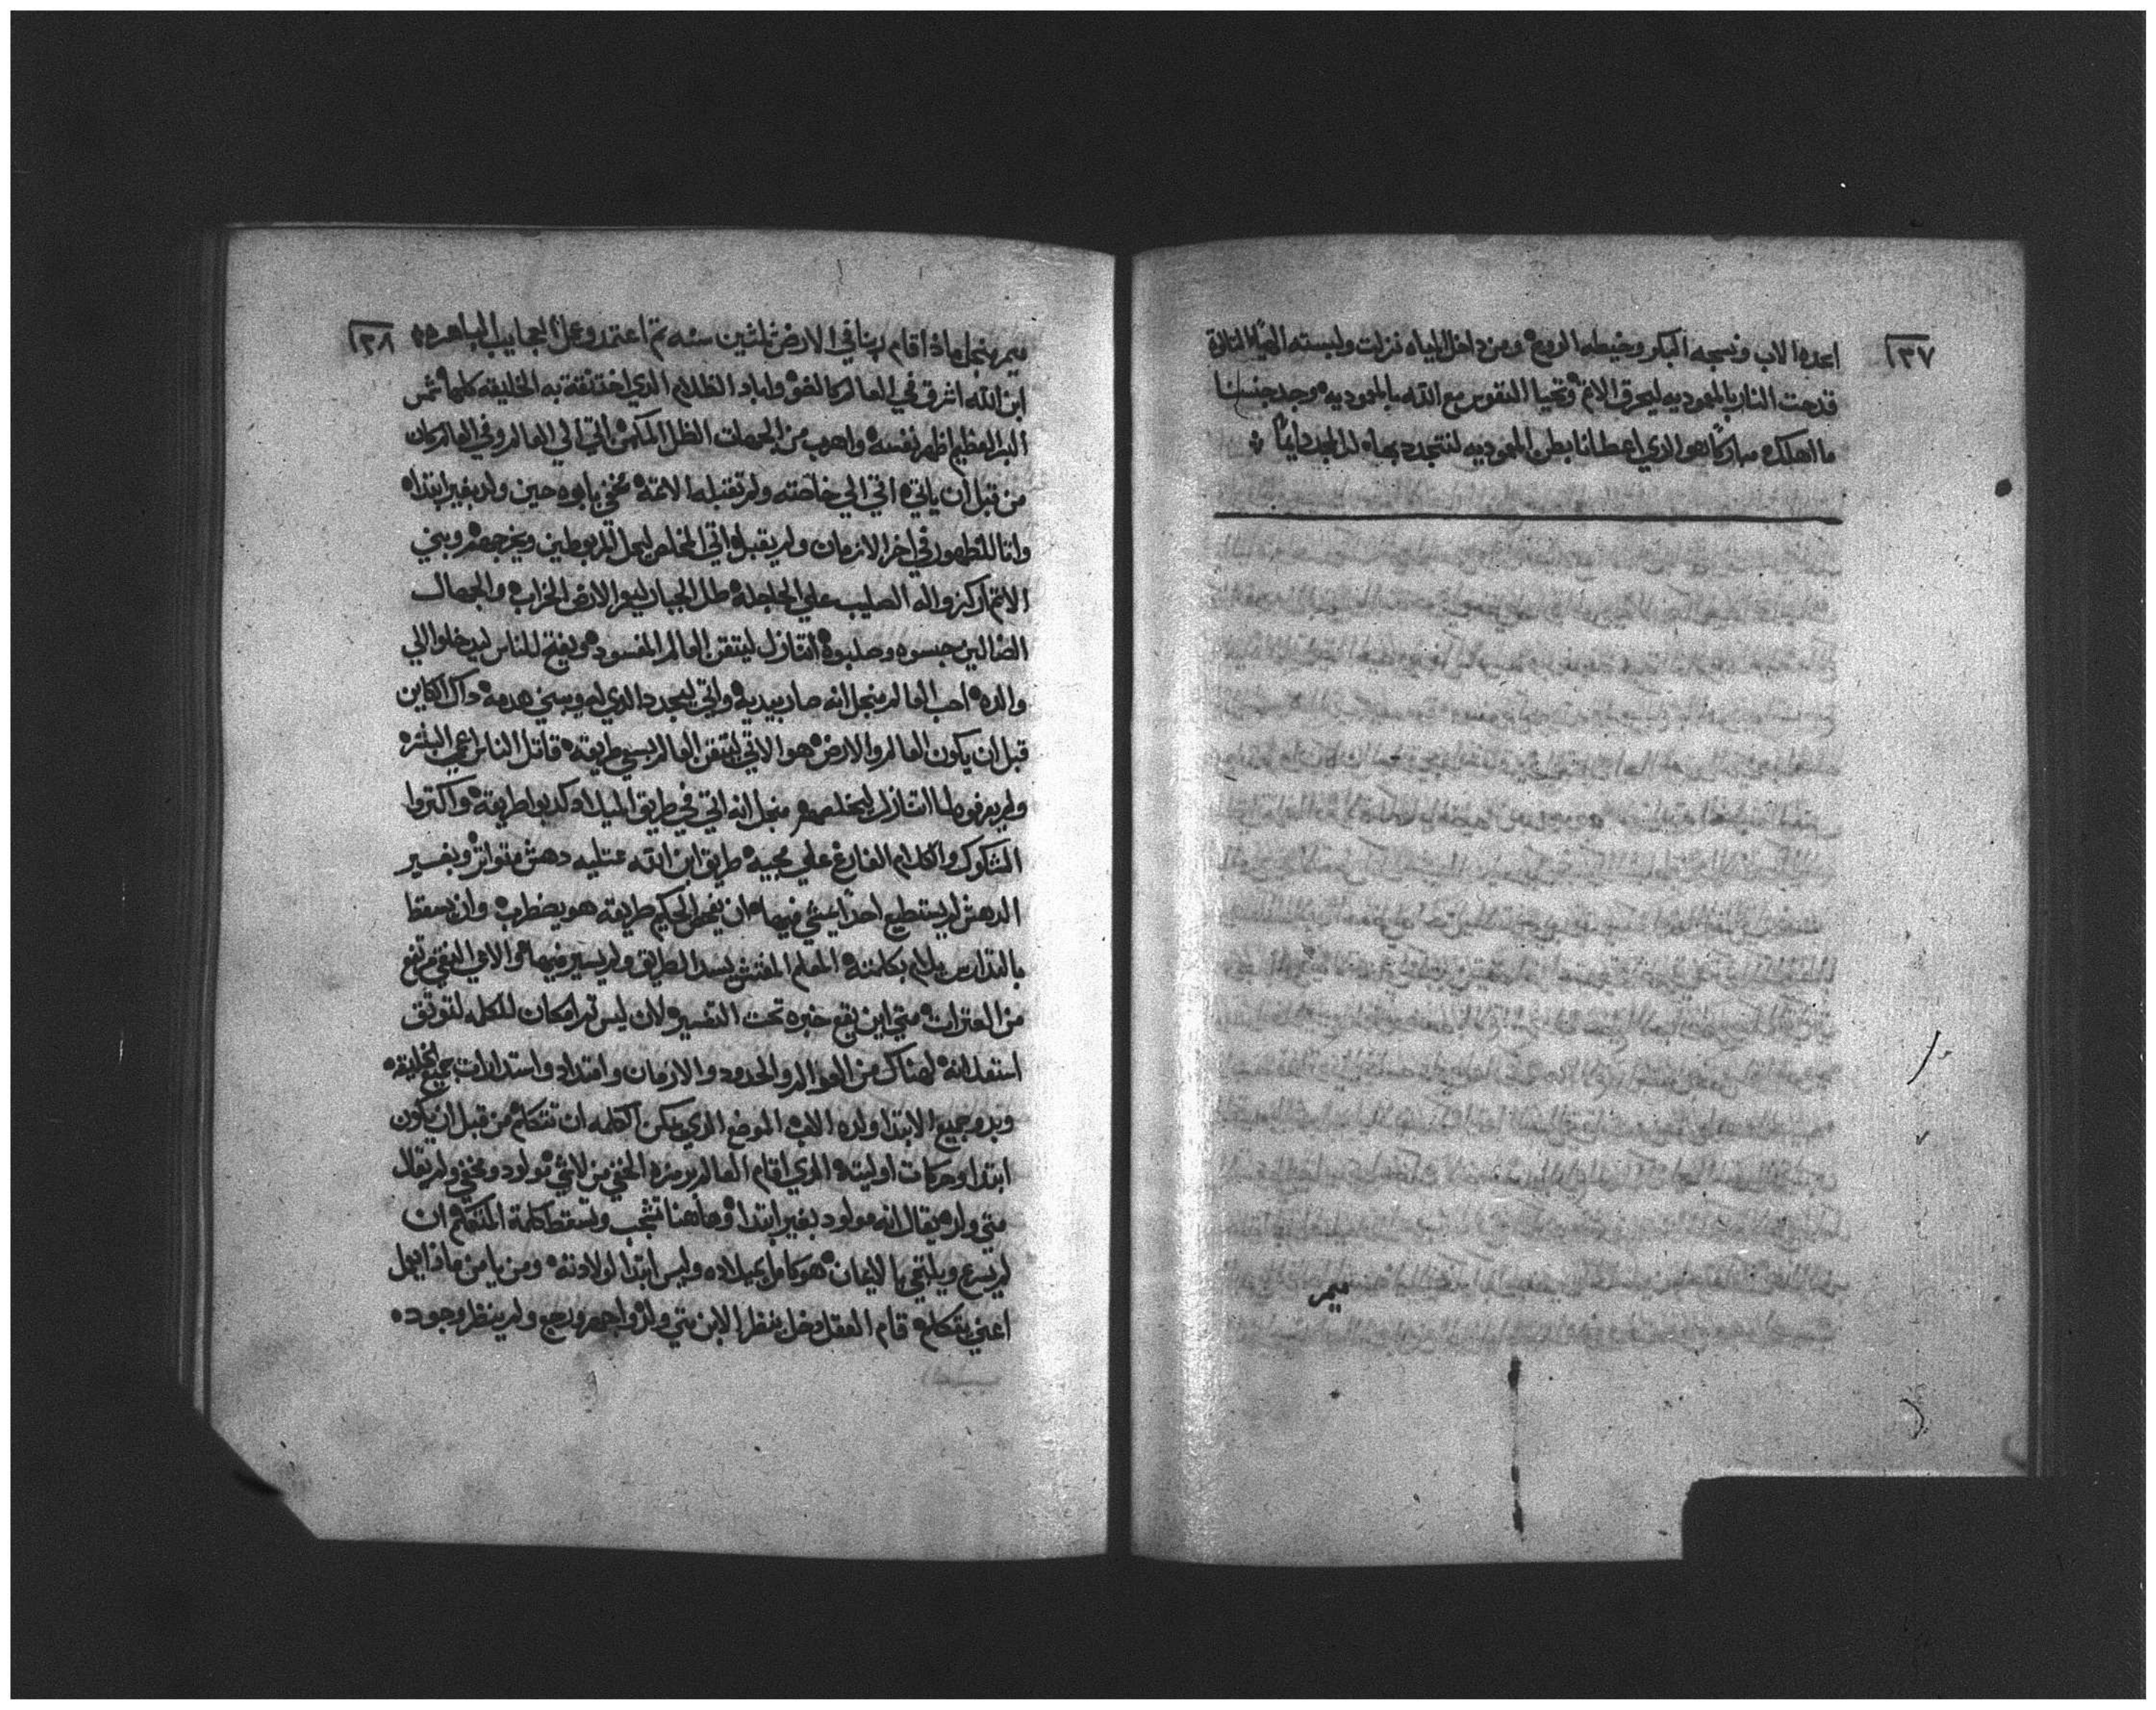 ١٣٧
اعده الاب ونسجه البكر وخيطه الروح ومن داخل المياه نزلت ولبسته الهياكل التالتة
قدحت النار بالمعموديه ليحرق الاثم وتحيا النفوس مع الله بالمعموديه وجد جنسنا
ما اهلكه مباركا هو الدي اعطانا بطن المعموديه لنتجدد بها له المجد دايما
ميمر
١٣٨
ميمر منجل ماذا اقام ربنا في الارض ثلثين سنه تم اعتمد وعمل العجايب الباهره
ابن الله اشرق في العالم كالضو واباد الظلام الدي اختنقت به الخليقه كلها شمس
البر العظيم اظهر نفسه واهرب من الجهات الظل المكمن اتي الي العالم وفي العالم كان
من قبل ان ياتي اتي الي خاصته ولم تقبله الامة مخفي بابوه حين ولد بغير ابتداه
واتا للظهور في اخر الازمان ولم يقبل اتي المخلص ليحل المربوطين ويخرجهم وبني
الاتم اركزوا له الصليب علي الجلجلة طلل الجبار ليعمر الارض الخراب والجهال
الضالين حبسوه وصلبوه اتنازل ليتقن العالم المفسود ويفتح للناس ليدخلوا الي
والده احب العالم منجل انه صار بيديه واتي ليجدد الدي له ويبني هدمه داك الكاين
قبل ان يكون العالم والارض هو الاتي ليتقن العالم بسبي طريقه قاتل الناس عمي البشره
ولم يعرفوه لما اتنازل ليخلصهم منجل انه اتي في طريق الميلاد كدبوا طريقه واكتروا
الشكوك والكلام الفارغ علي مجيه طريق ابن الله عتليه دهش متواتر وبغير
الدهش لم يستطيع احدا يمشي فيها ان يفحص الحكيم طريقه هو يضطرب وان يسقط
بالتدارس يلام بكلمته المعلم المفتش يسد الطريق ولم يسير فيها والامي النقي مرتفع
من العترات متي اين يقع خبره تحت التفسير لان ليس تم امكان للكلمه لتوتق
استعلانه لهناك من العوالم والحدود والازمان وامتداد واستدارات جميع الخليقه
وبدو جميع الابتدا ولده الاب الموضع الدي يمكن الكلمه ان تتكلم من قبل ان يكون
ابتدا وحركات اوليته الدي اقام العالم برمزه الخفي من لاشي مولود ومخفي ولم يقال
متي ولد يقال انه مولود بغير ابتدا وهاهنا تتعجب وتسقط كلمة المتكلم ان
لم يسرع ويلتقي بالايمان هو كامل بميلاده وليس ابتدا لولادته ومن يامن ماذا يعمل
اعني يتكلم قام العقل دخل ينظر الابن متي ولد واحد ورجع ولم ينظر وجوده